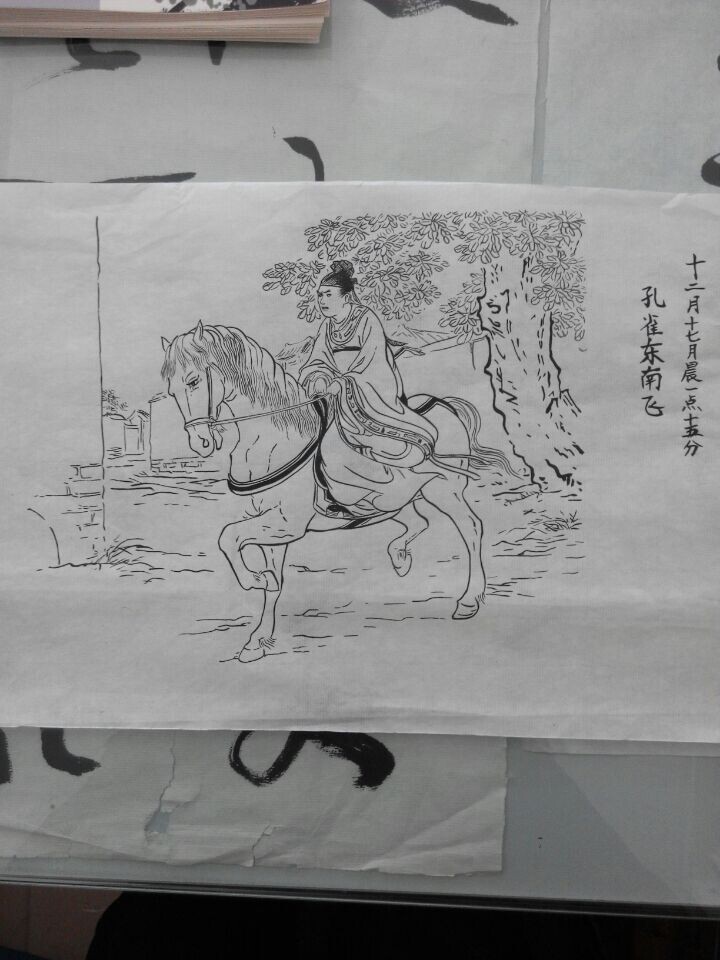 十二月十七月晨一点十五分
孔雀东南飞